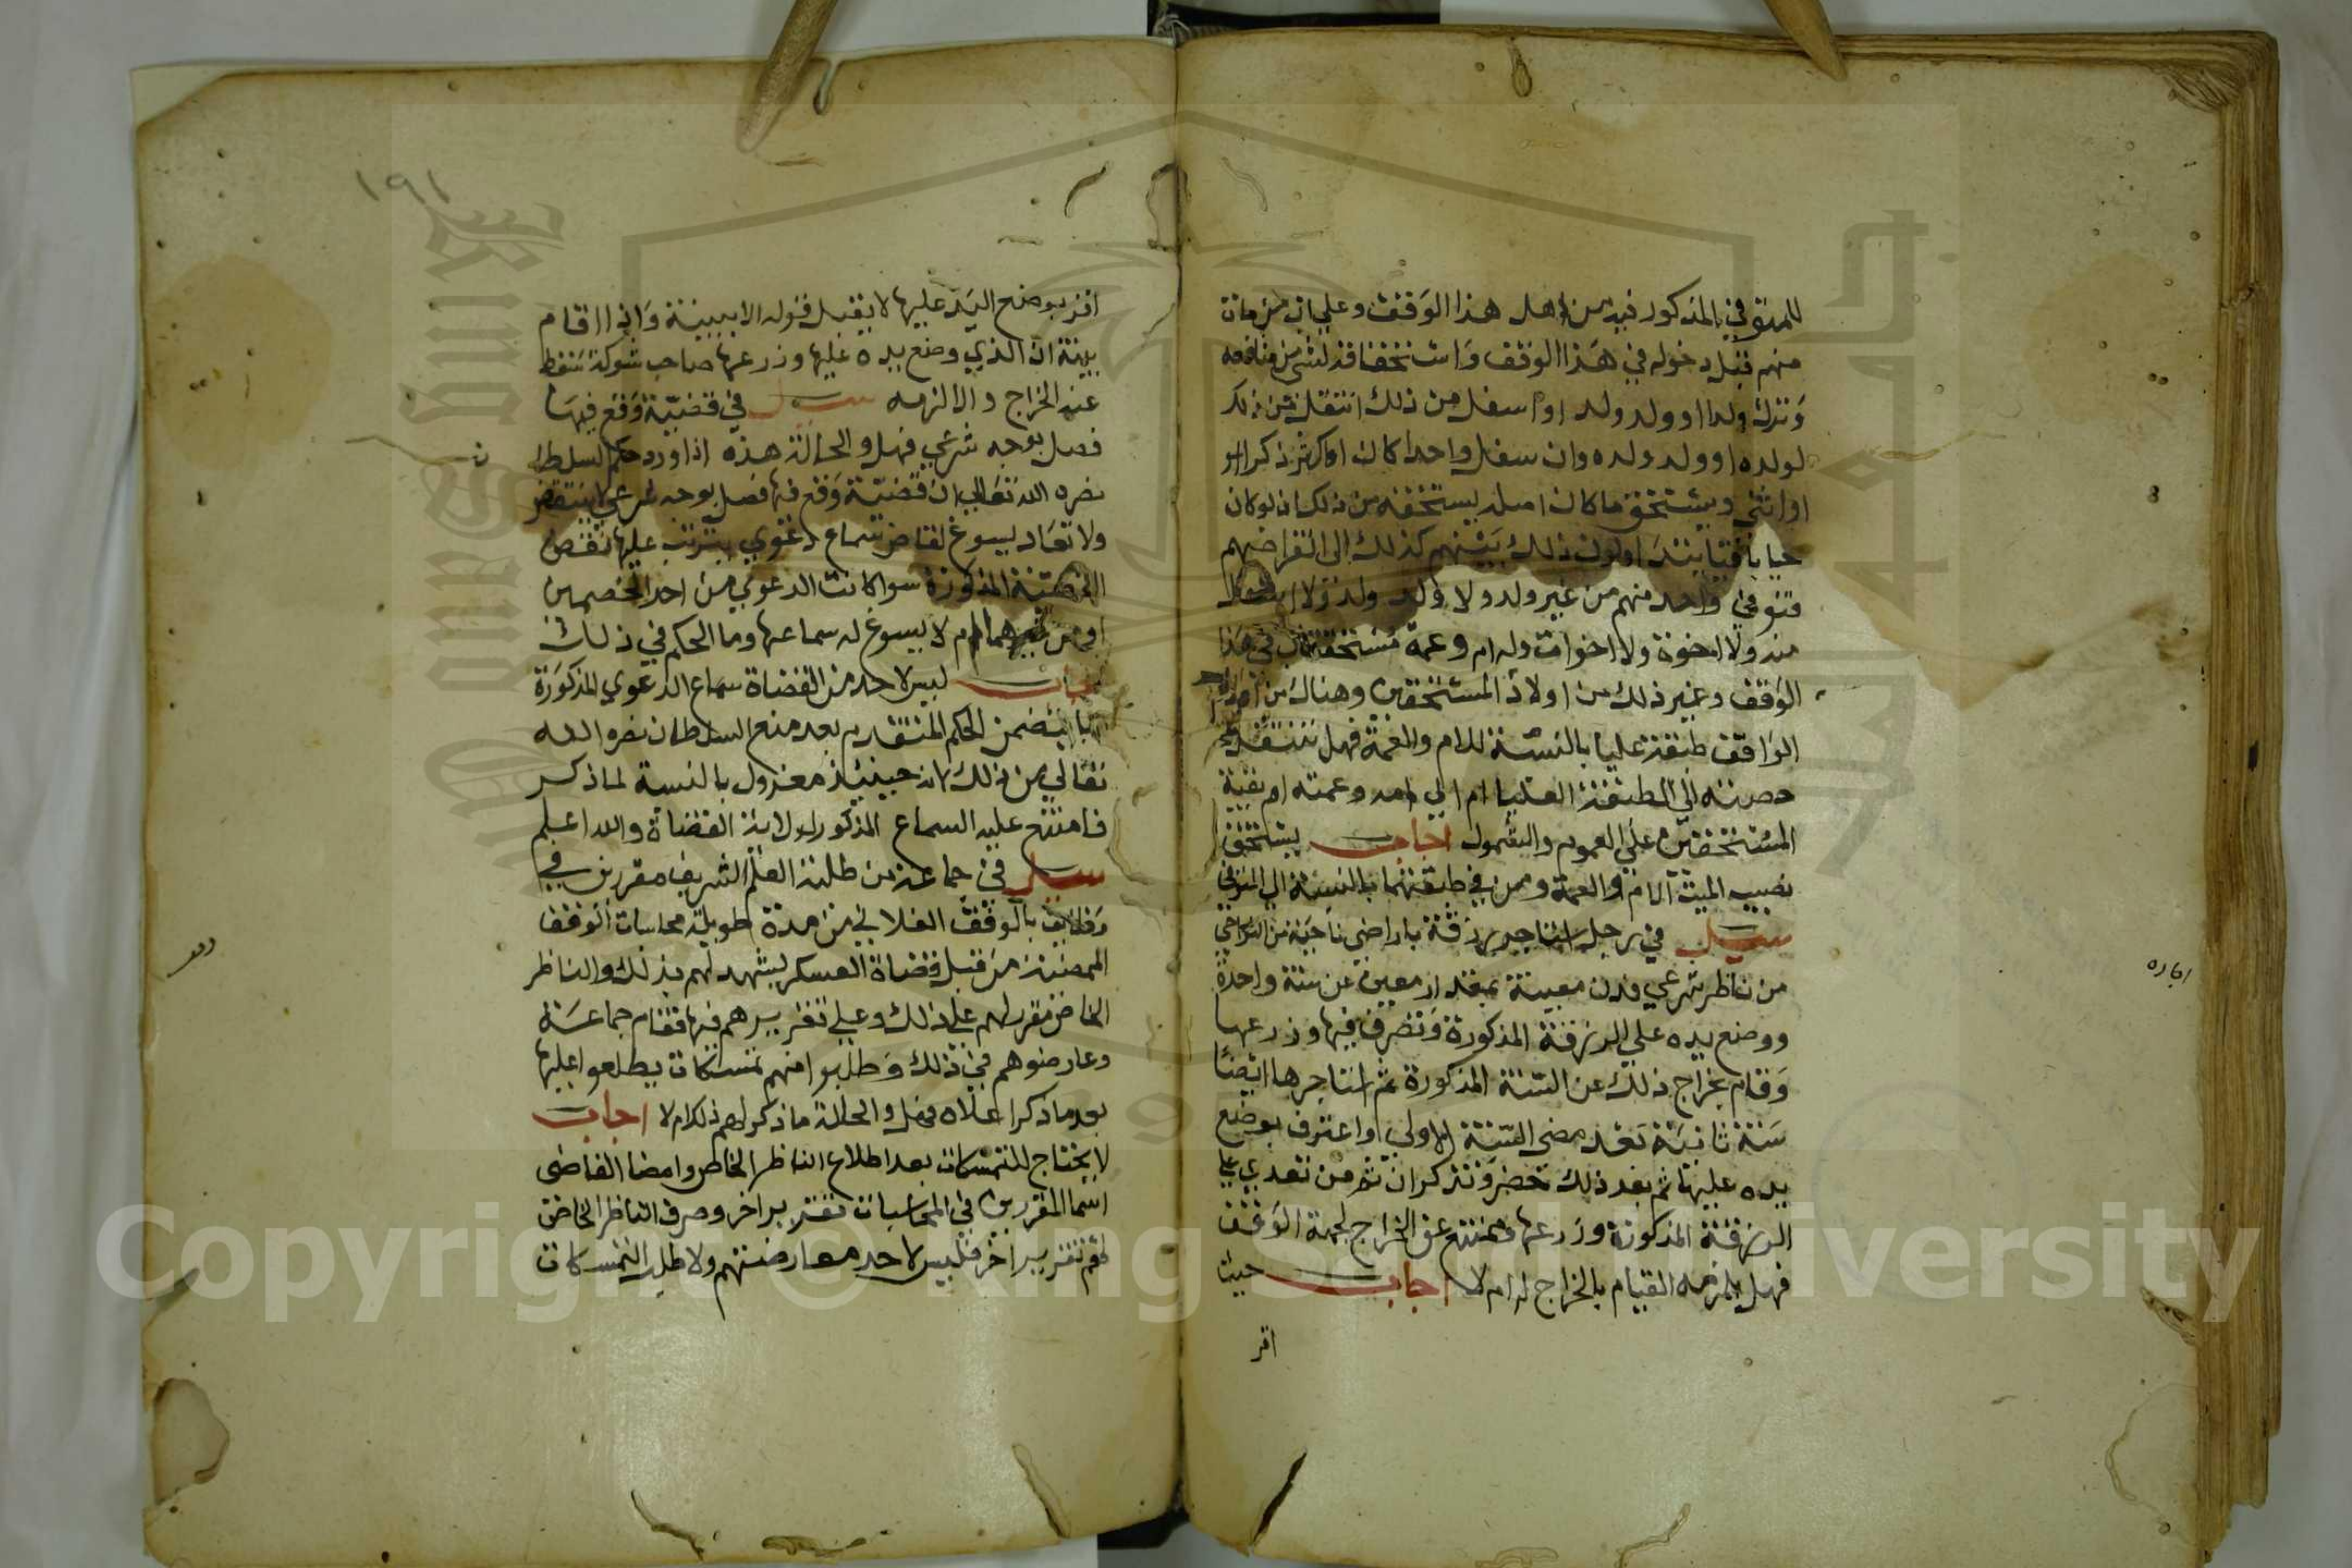 للمتوفي المذكور فيه من اهل هذا الوقف وعلي ان من مات
منهم قبل دخوله في هذا الوقف واستحقاقه لشي من منافعه
وترك ولدا او ولد ولد او اسفل من ذلك انتقل من ذكر
لولده او ولد ولده وان سفل واحدا كان او اكثر ذكرا او
او انثي ويستحق ما كان اصله يستحقه من ذلك ان لو كان
حيا باقيا يتداولون ذلك بينهم كذلك الي انقراضهم
فتوفي واحد منهم من غير ولد ولا ولد ولد ولا اسفل
منه ولا اخوة ولا اخوات وله ام وعمة مستحقتان في هذا
الوقف وغير ذلك من اولاد المستحقين وهناك من اولاد
الواقف طبقة عليا بالنسبة للام والعمة فهل تنتقل
حصته الي الطبقة العليا ام الي امه وعمته ام بقية
المستحقين علي العموم والشمول اجاب يستحق
نصيب الميت الام والعمة ومن في طبقتهما بالنسبة الي المتوفي
سيل في رجل استاجر رزقة باراضي ناحية من النواحي
اجاره
من ناظر شرعي فدن معينة بمقدار معين عن سنة واحدة
ووضع يده علي الرزقة المذكورة وتصرف فيها وزرعها
وقام بخراج ذلك عن السنة المذكورة ثم استاجرها ايضا
سنة ثانية بعد مضي السنة الاولي واعترف بوضع
يده عليها ثم بعد ذلك حضر وتذكر ان ثم من تعدي علي
الرزقة المذكورة وزرعها فمنته عن الخراج لجهة الوقف
فهل يلزمه القيام بالخراج له ام لا اجاب حيث
اقر
١٩١
اقر بوضع اليد عليها لا يقبل قوله الا ببينة واذا اقام
بينة ان الذي وضع يده عليها وزرعها صاحب شوكة سقط
عنه الخراج والا لزمه سيل في قضية وقع فيها
فصل بوجه شرعي فهل والحالة هذه اذا ورد حكم السلطان
نصره الله تعالي ان قضية وقع فيها فصل بوجه شرعي لا ينتقض
ولا تعاد يسوغ لقاض سماع دعوي يترتب عليها نقض
القضية المذكورة سوا كانت الدعوي من احد الخصمين
او من غيرهما ام لا يسوغ له سماعها وما الحكم في ذلك
اجاب ليس لاحد من القضاة سماع الدعوي المذكورة
بما يتضمن الحكم المتقدم بعد منع السلطان نصره الله
تعالي من ذلك لانه حينيذ معزول بالنسبة لما ذكر
فامتنع عليه السماع المذكور لولاية القضاة والله اعلم
سيل في جماعة من طلبة العلم الشريف مقررين في
وظايف بالوقف الفلاني من مدة طويلة محاسبات الوقف
وقف
الممضية من قبل قضاة العسكر يشهد لهم بذلك والناظر
الخاص مقر لهم علي ذلك وعلي تقريرهم فيها فقام جماعة
وعارضوهم في ذلك وطلبوا منهم تمسكات يطلعوا عليها
بعد ما ذكر اعلاه فهل والحالة ما ذكر لهم ذلك ام لا اجاب
لا يحتاج للتمسكات بعد اطلاع الناظر الخاص وامضا القاضي
اسما المقررين في المحاسبات تقرير اخر وصرف الناظر الخاص
لهم تقرير اخر فليس لاحد معارضتهم ولا طلب التمسكات
Copyright © King Saud University